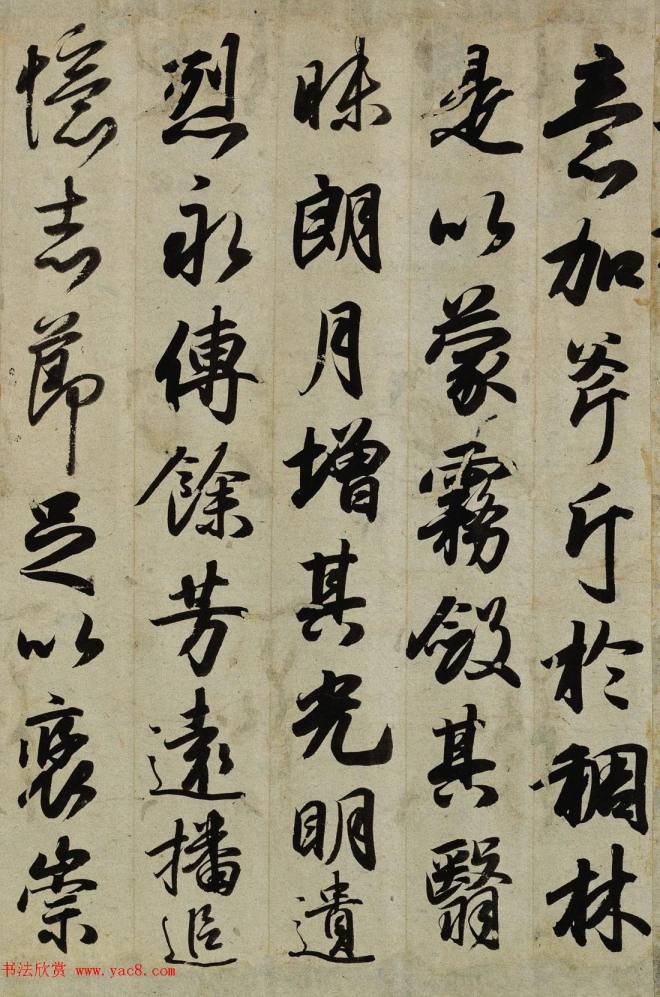 意加斧斤於稠林
是以蒙霧斂其翳
昧朗月增其光明遺
烈永傳餘芳遠播追
憶志節足以襃崇
书法欣赏 www.yac8.com